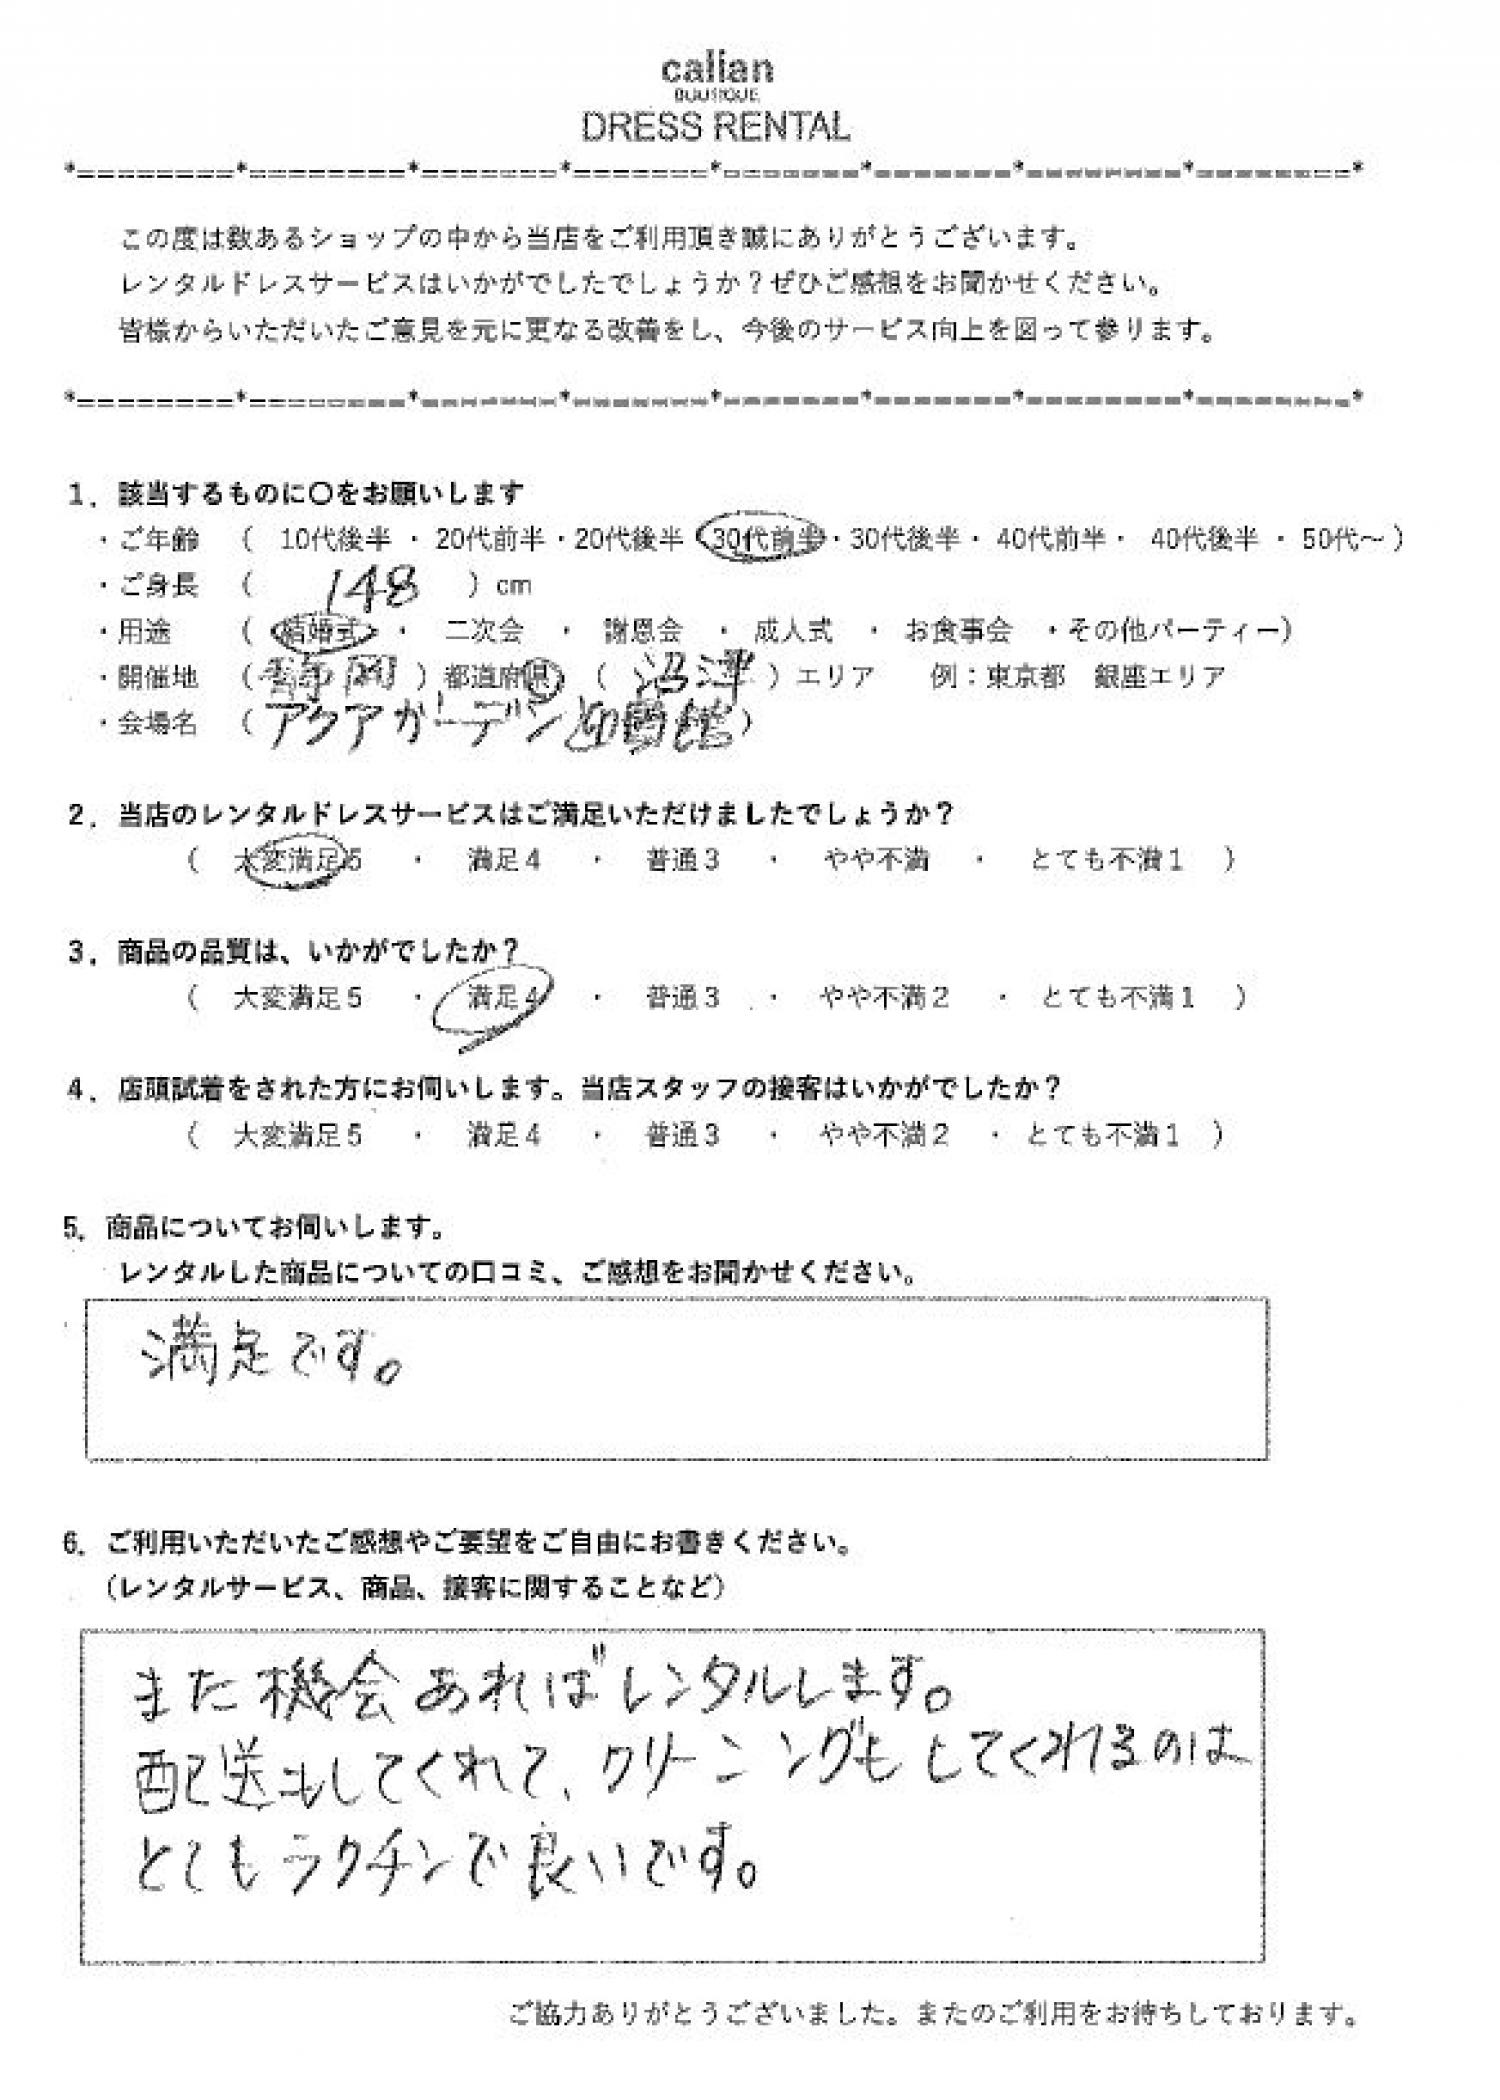 calian
BOUTIQUE
DRESS RENTAL
*========*========*=======*=======*=======*=======*========*========*
この度は数あるショップの中から当店をご利用頂き誠にありがとうございます。
レンタルドレスサービスはいかがでしたでしょうか？ぜひご感想をお聞かせください。
皆様からいただいたご意見を元に更なる改善をし、今後のサービス向上を図って参ります。
*========*========*=======*=======*=======*=======*========*========*
1．該当するものに〇をお願いします
・ご年齢　（ 10代後半 ・ 20代前半・20代後半・30代前半・30代後半・ 40代前半・ 40代後半 ・ 50代～）
・ご身長　（ 148 ）cm
・用途　（ 結婚式 ・ 二次会 ・ 謝恩会 ・ 成人式 ・ お食事会 ・その他パーティー）
・開催地　（ 静岡 ）都道府県 （ 沼津 ）エリア　例：東京都　銀座エリア
・会場名　（ アクアガーデン迎賓館 ）
2．当店のレンタルドレスサービスはご満足いただけましたでしょうか？
（ 大変満足5 ・ 満足4 ・ 普通3 ・ やや不満 ・ とても不満1 ）
3．商品の品質は、いかがでしたか？
（ 大変満足5 ・ 満足4 ・ 普通3 ・ やや不満2 ・ とても不満1 ）
4．店頭試着をされた方にお伺いします。当店スタッフの接客はいかがでしたか？
（ 大変満足5 ・ 満足4 ・ 普通3 ・ やや不満2 ・ とても不満1 ）
5．商品についてお伺いします。
レンタルした商品についての口コミ、ご感想をお聞かせください。
満足です。
6．ご利用いただいたご感想やご要望をご自由にお書きください。
（レンタルサービス、商品、接客に関することなど）
また機会あればレンタルします。
配送もしてくれて、クリーニングもしてくれるのは
とてもラクチンで良いです。
ご協力ありがとうございました。またのご利用をお待ちしております。